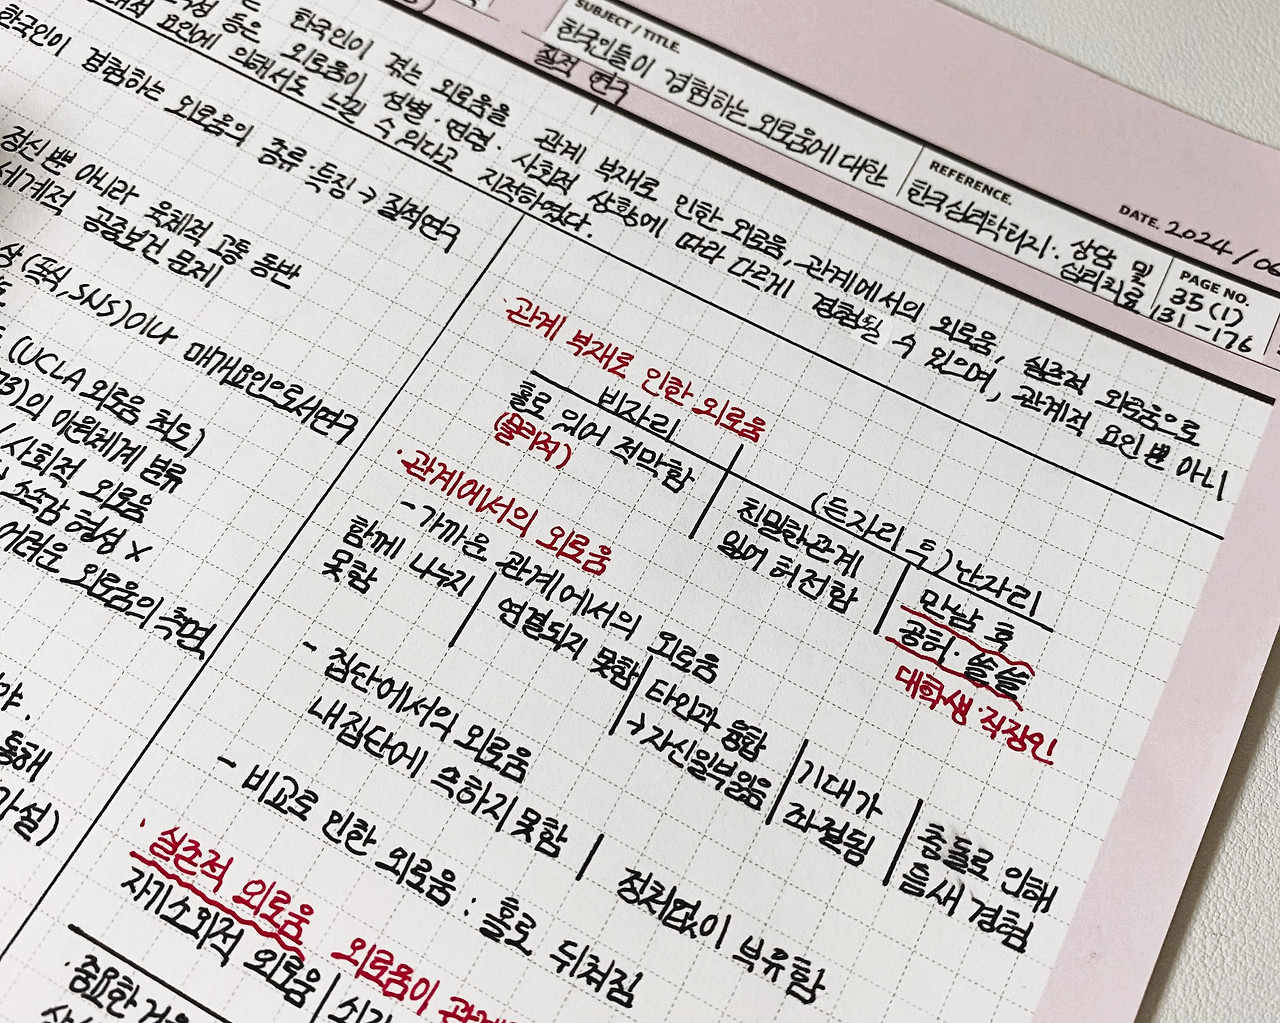 SUBJECT / TITLE.
한국인들이 경험하는 외로움에 대한
질적 연구
REFERENCE.
한국심리학회지 · 상담 및
심리치료
DATE. 2024 / 06
PAGE NO.
35 (1)
131 - 176
등은 한국인이 겪는 외로움을 관계 부재로 인한 외로움, 관계에서의 외로움, 실존적 외로움으로
외로움이 성별 · 연령 · 사회적 상황에 따라 다르게 경험될 수 있으며, 관계적 요인 뿐 아니
요인에 의해서도 느낄 수 있다고 지적하였다.
한국인이 경험하는 외로움의 종류 · 특징 → 질적연구
정신 뿐 아니라 육체적 고통 동반
세계적 공중보건 문제
(폭식, SNS)이나 매개요인으로서연구
(UCLA 외로움 척도)
73)의 이원체계 분류
/사회적 외로움
소속감 형성 ×
어려운 외로움의 측면
통해
가설)
· 관계 부재로 인한 외로움
빈자리
홀로 있어 적막함
(물리적)
(든자리 후) 난자리
친밀한관계
잃어 허전함
만남 후
공허 · 쓸쓸
대학생 · 직장인
· 관계에서의 외로움
- 가까운 관계에서의 외로움
함께 나누지
못함
연결되지 못함
타인과 융합
→ 자신일부잃음
기대가
좌절됨
충돌로 인해
틈새 경험
- 집단에서의 외로움
내집단에 속하지 못함
정처없이 부유함
- 비교로 인한 외로움 : 홀로 뒤쳐짐
· 실존적 외로움 외로움이 관계
자기소외적 외로움
· 중요한 것은